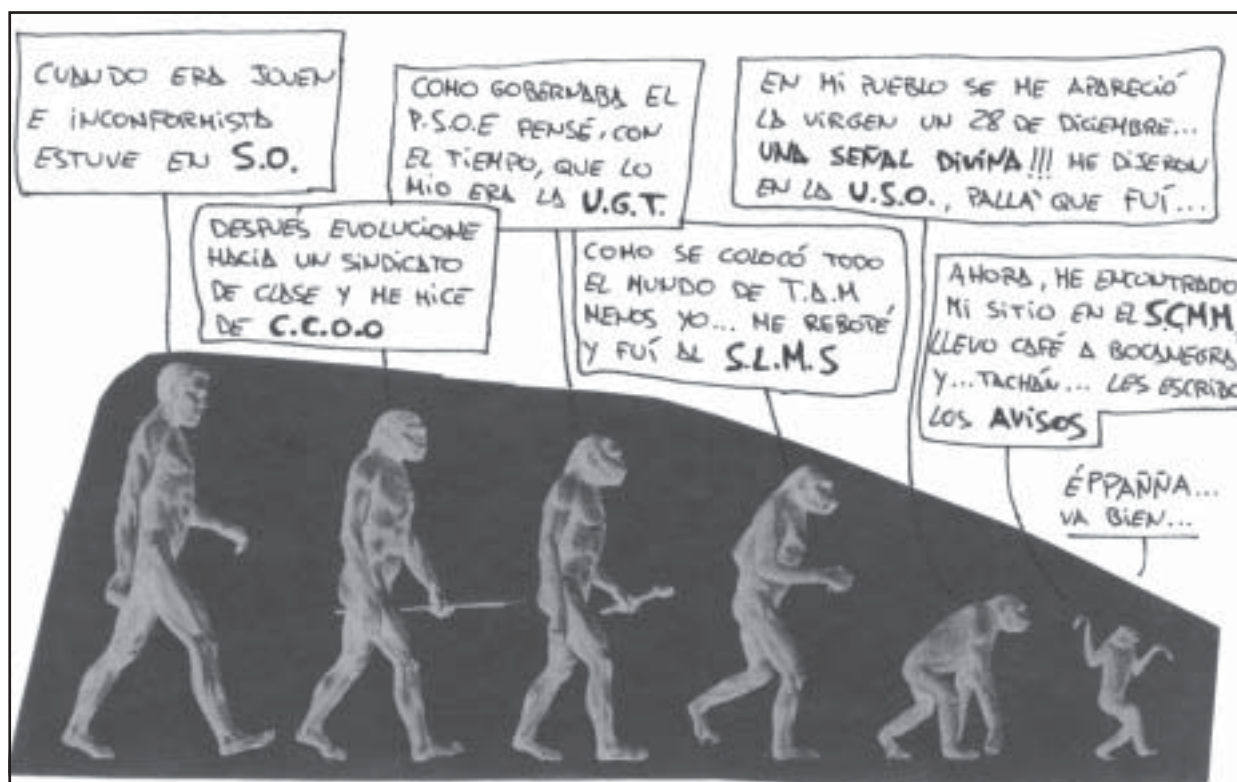 CUANDO ERA JOVEN
E INCONFORMISTA
ESTUVE EN S.O.
DESPUÉS EVOLUCIONE
HACIA UN SINDICATO
DE CLASE Y ME HICE
DE C.C.O.O
COMO GOBERNABA EL
P.S.O.E PENSÉ, CON
EL TIEMPO, QUE LO
MIO ERA LA U.G.T.
COMO SE COLOCÓ TODO
EL MUNDO DE T.A.M
MENOS YO... ME REBOTÉ
Y FUÍ AL S.L.M.S
EN MI PUEBLO SE ME APARECIÓ
LA VIRGEN UN 28 DE DICIEMBRE...
UNA SEÑAL DIVINA!!! ME DIJERON
EN LA U.S.O., PALLA' QUE FUÍ...
AHORA, HE ENCONTRADO
MI SITIO EN EL S.C.M.M
LLEVO CAFÉ A BOCANEGRA
Y...TACHÁN... LES ESCRIBO
LOS AVISOS
ÉPPAÑÑA...
VA BIEN...